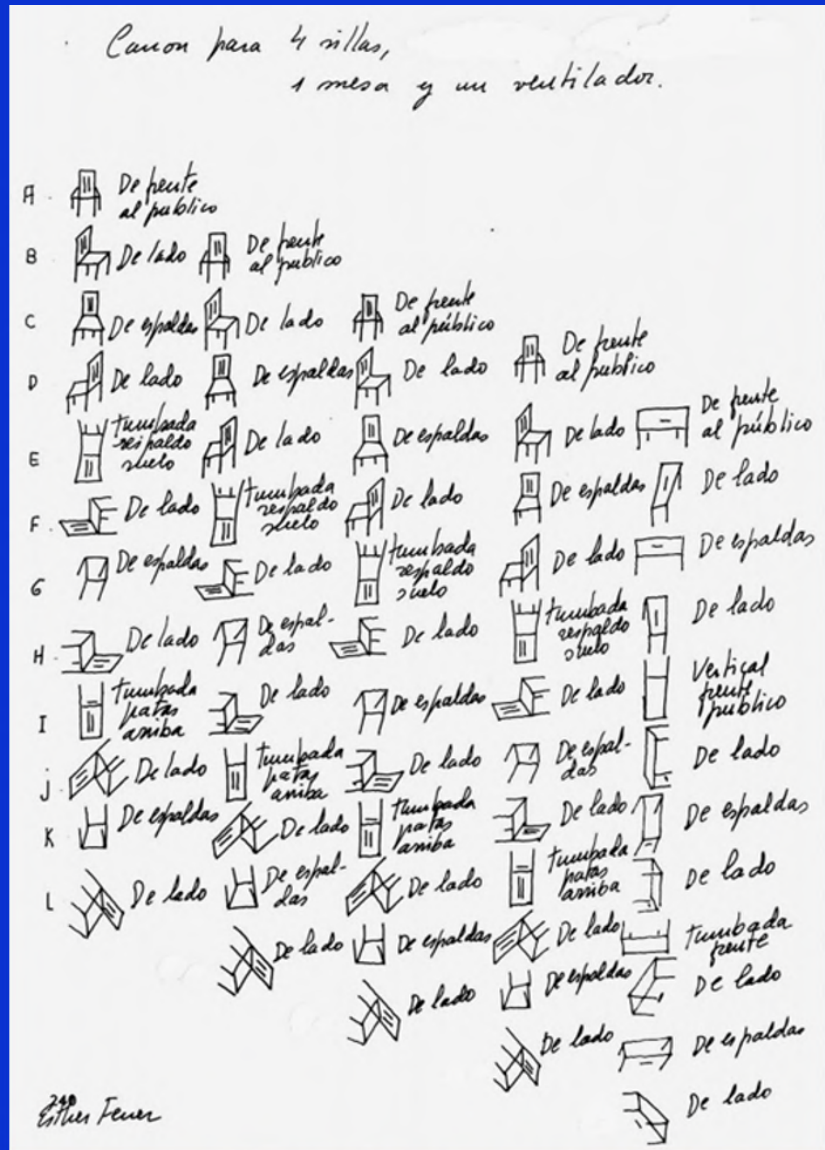 Canon para 4 sillas,
1 mesa y un ventilador.
A. De frente al publico
B De lado De frente al publico
C De espaldas De lado De frente al público
D De lado De espaldas De lado De frente al publico
E tumbada respaldo suelo De lado De espaldas De lado De frente al público
F. De lado tumbada respaldo suelo De lado De espaldas De lado
G De espaldas De lado tumbada respaldo suelo De lado De espaldas
H. De lado De espal-das De lado tumbada respaldo suelo De lado
I tumbada patas arriba De lado De espaldas De lado Vertical frente publico
j. De lado tumbada patas arriba De lado De espal-das De lado
K De espaldas De lado tumbada patas arriba De lado De espaldas
L De lado De espal-das De lado tumbada patas arriba De lado
De lado De espaldas De lado tumbada frente
De lado De espaldas De lado
De lado De espaldas
De lado
Esther Ferrer